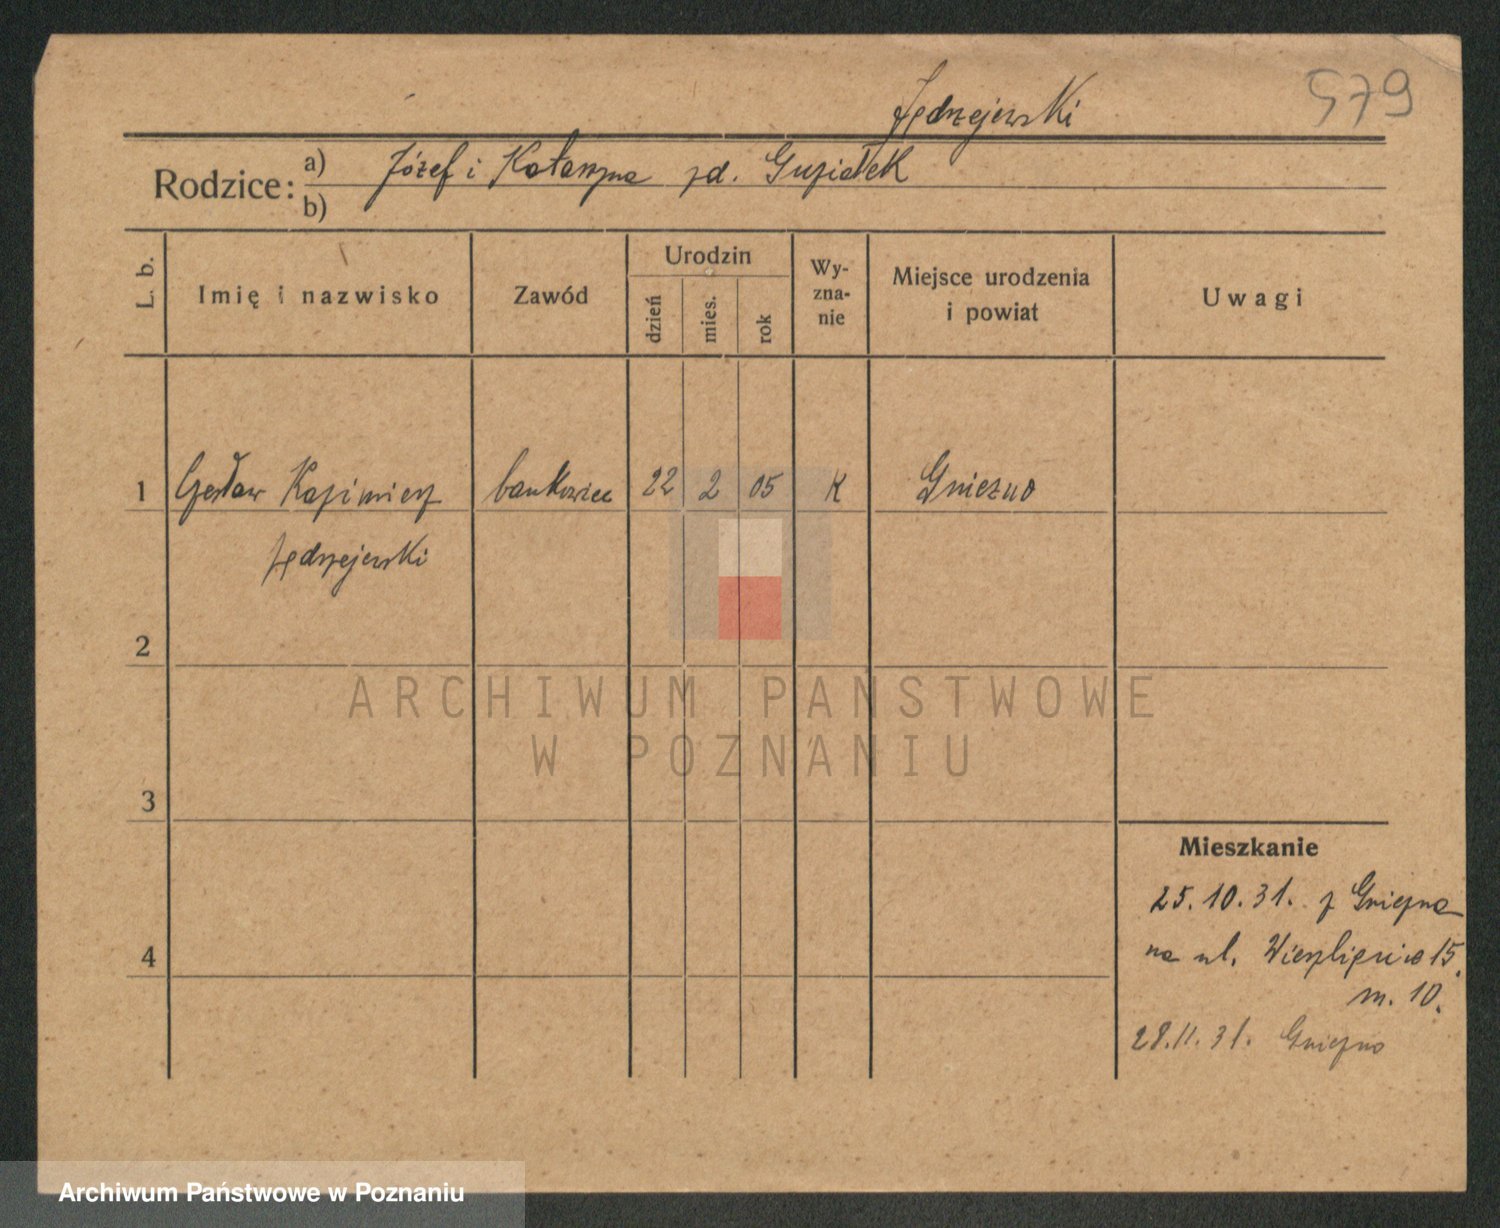 579
Jędrzejewski
Rodzice: a) Józef i Katarzyna zd. Guziałek
b)
L. b. Imię i nazwisko Zawód Urodzin dzień mies. rok Wy-zna-nie Miejsce urodzenia i powiat Uwagi
1 Czesław Kazimierz bankowiec 22 2 05 K Gniezno
Jędrzejewski
2
ARCHIWUM PAŃSTWOWE
W POZNANIU
3
Mieszkanie
25.10.31. z Gniezna
na ul. Wierzbięcice 15.
4
m. 10.
28.11.31. Gniezno
Archiwum Państwowe w Poznaniu